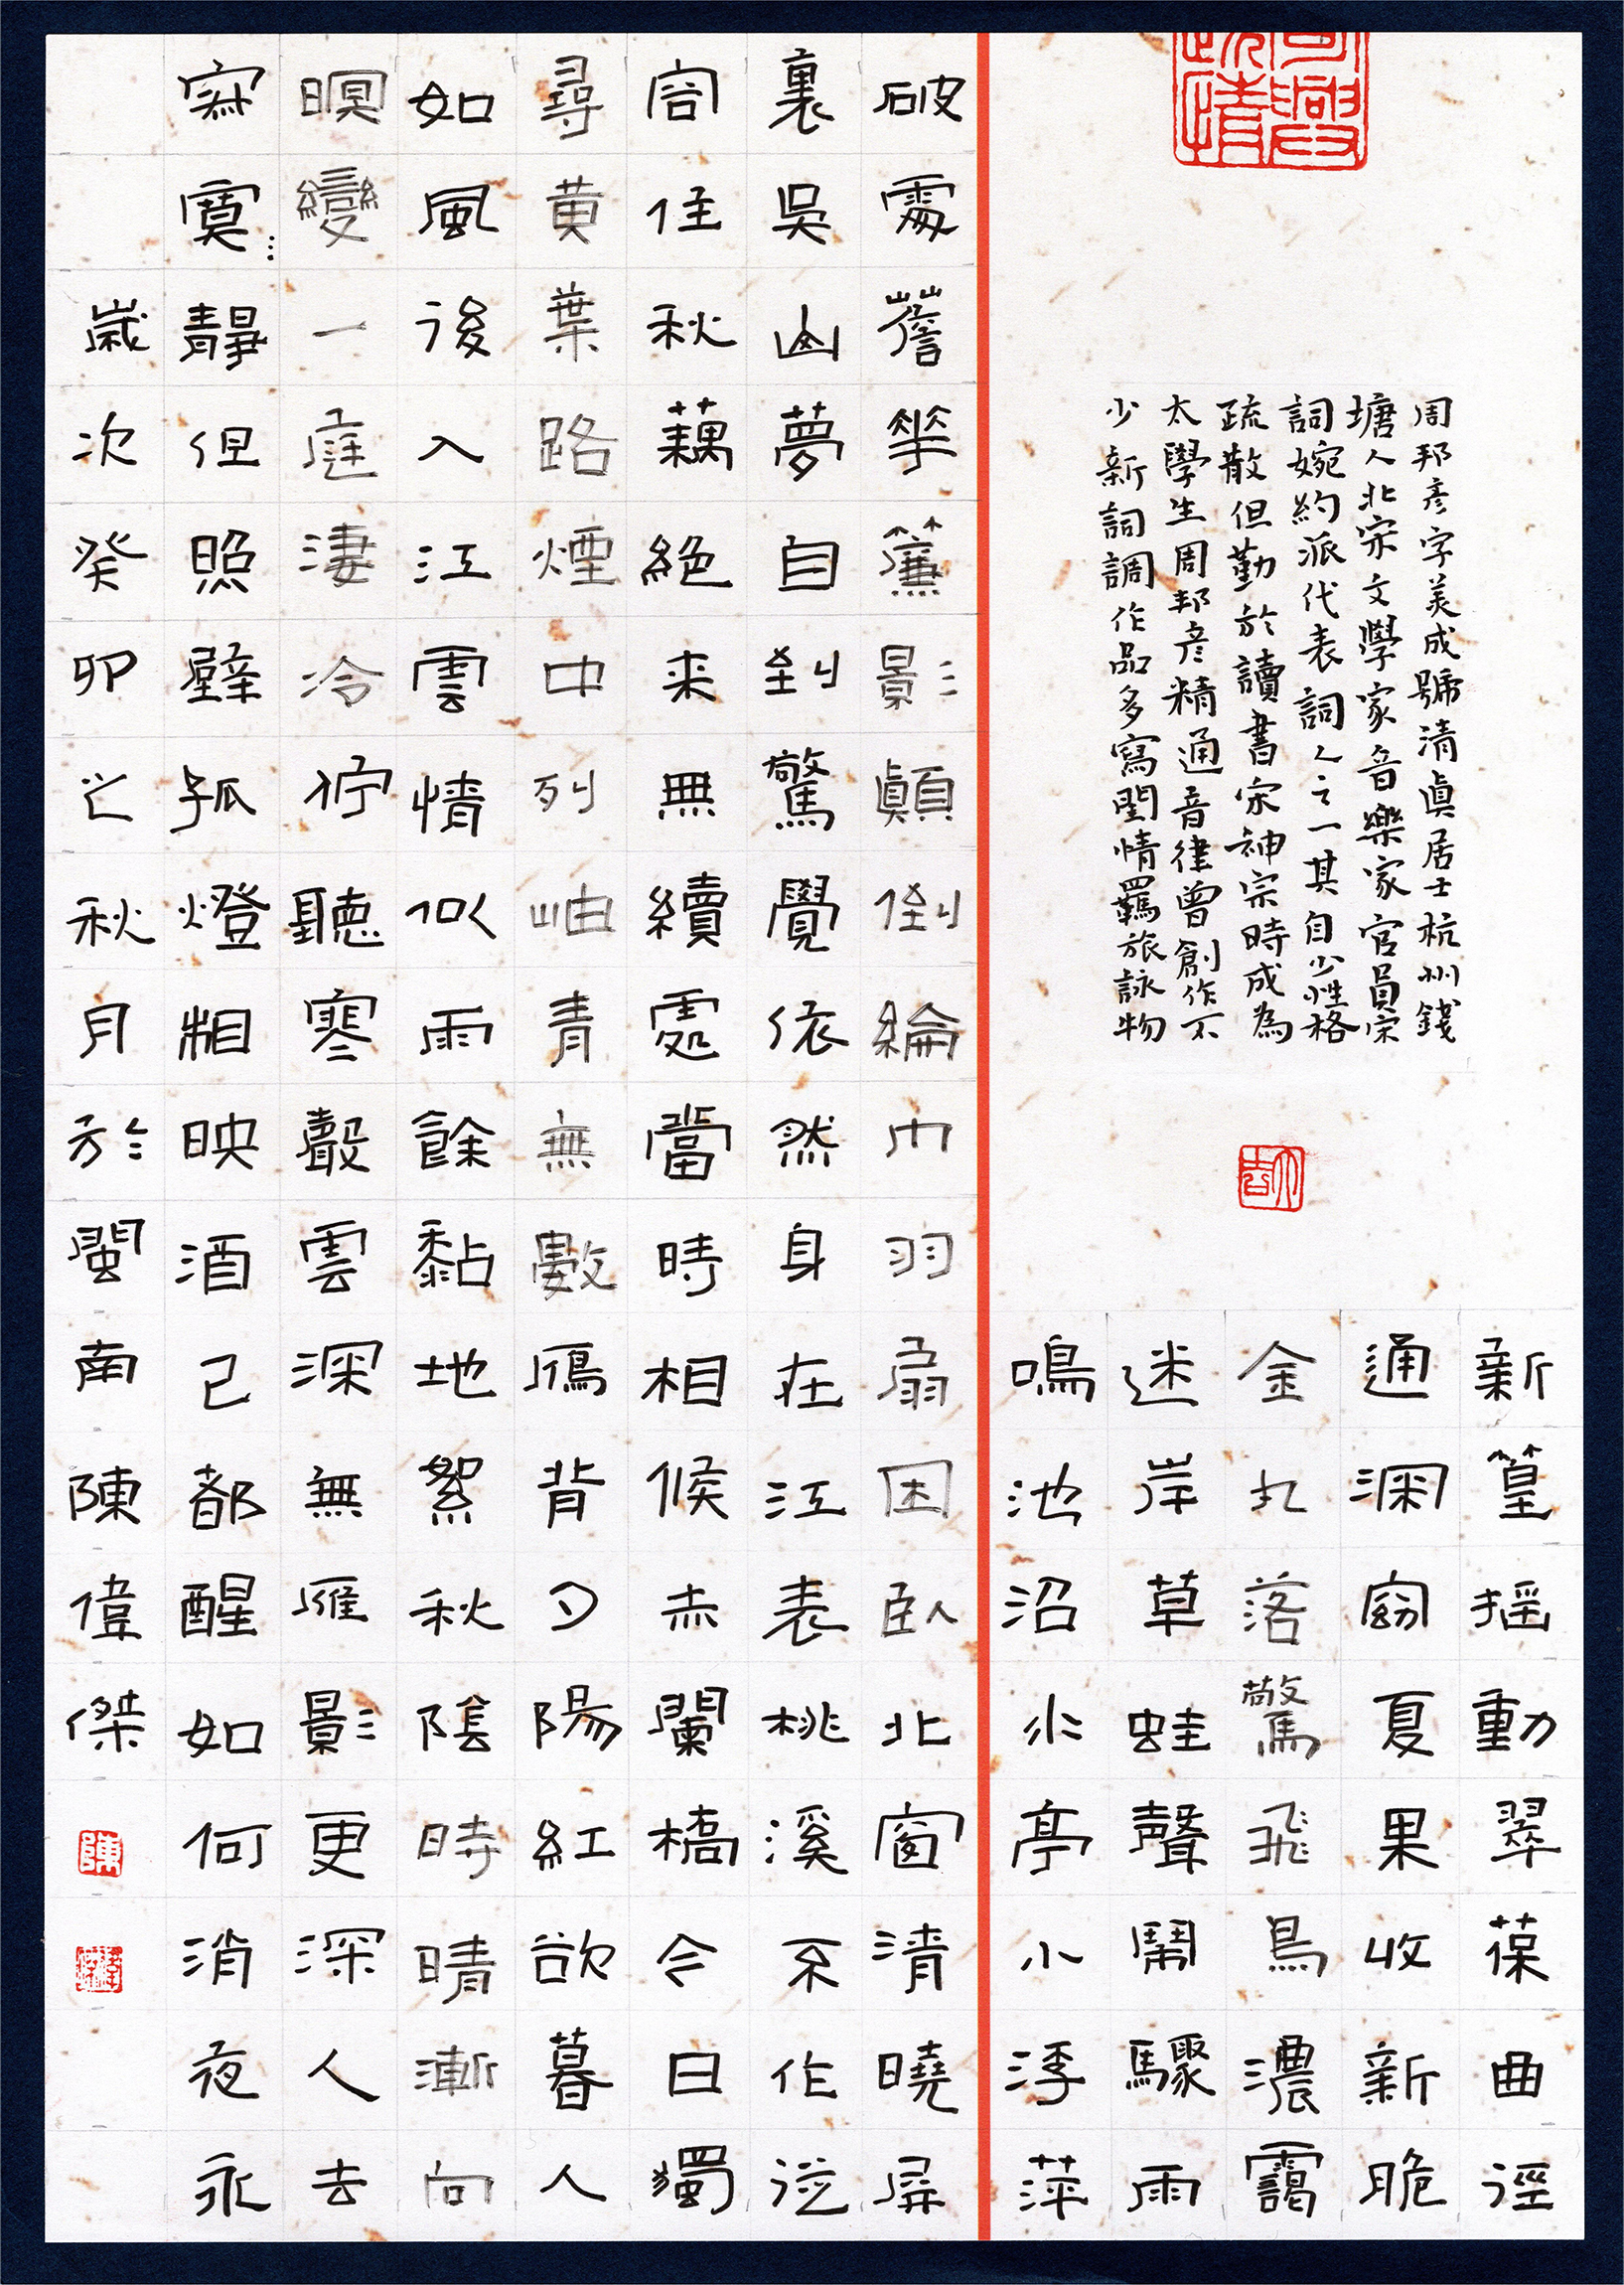 周邦彥字美成號清真居士杭州錢
塘人北宋文學家音樂家官員宋
詞婉約派代表詞人之一其自少性格
疏散但勤於讀書宋神宗時成為
太學生周邦彥精通音律曾創作不
少新詞調作品多寫閨情羈旅詠物
新篁搖動翠葆曲徑
通深窈夏果收新脆
金丸落驚飛鳥濃靄
迷岸草蛙聲鬧驟雨
鳴池沼水亭小浮萍
破處簷花簾影顛倒綸巾羽扇困臥北窗清曉屏
裏吳山夢自到驚覺依然身在江表桃溪不作從
容住秋藕絕來無續處當時相候赤闌橋今日獨
尋黃葉路煙中列岫青無數雁背夕陽紅欲暮人
如風後入江雲情似雨餘黏地絮秋陰時晴漸向
暝變一庭淒冷佇聽寒聲雲深無雁影更深人去
寂寞靜但照壁孤燈相映酒已都醒如何消夜永
歲次癸卯之秋月於閩南陳偉傑